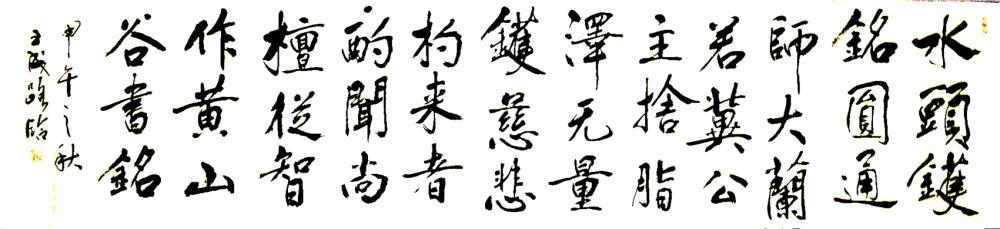 水頭鑊
銘圓通
師大蘭
若蓂公
主捨脂
澤无量
鑊慈悲
杓来者
酌聞尚
檀從智
作黄山
谷書銘
甲午之秋